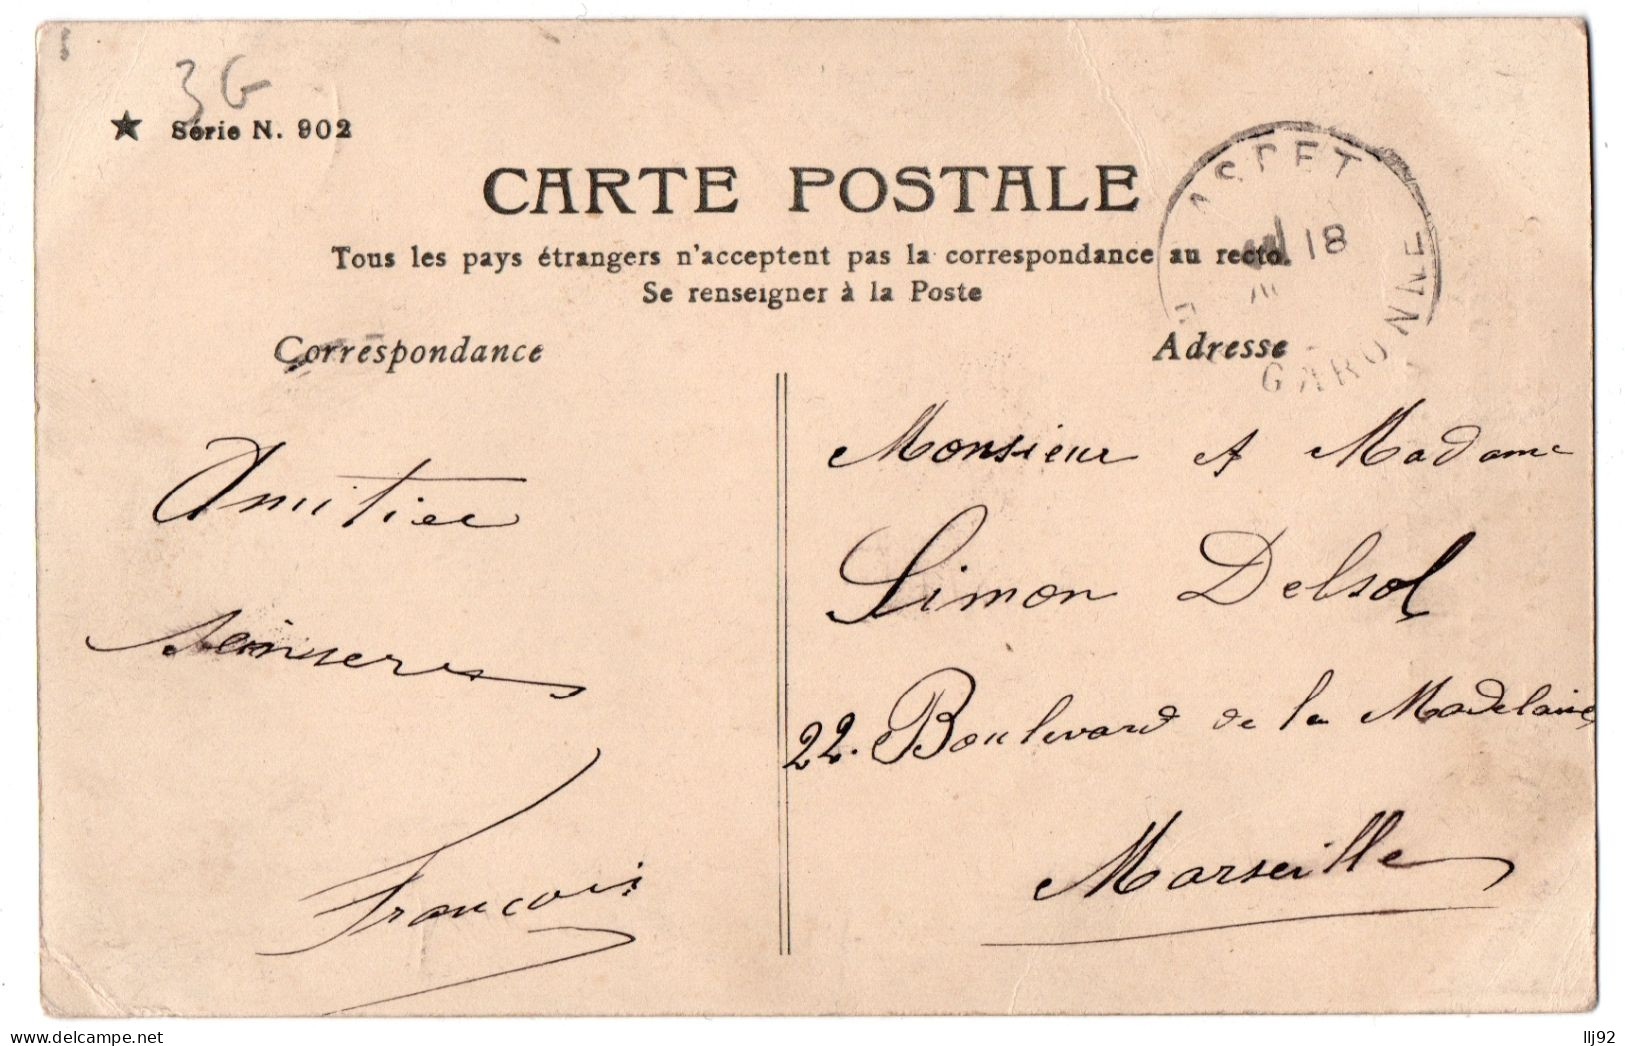 3G
★ Série N. 902
CARTE POSTALE
Tous les pays étrangers n'acceptent pas la correspondance au recto.
Se renseigner à la Poste
Correspondance
Adresse
ASPET
18
GARONNE
Amitiee
Seinseres
François
Monsieur et Madame
Simon Delsol
22. Boulevard de la Madelaine
Marseille
delcampe.net
llj92